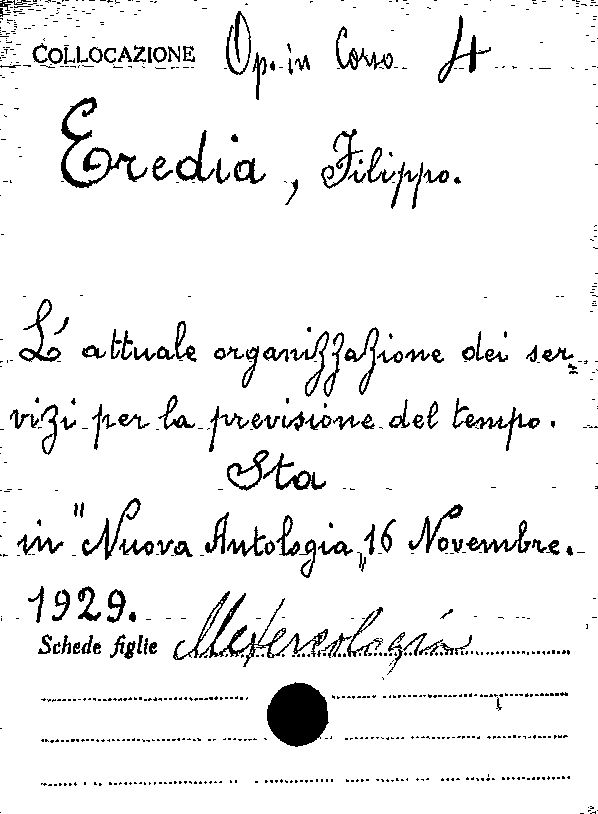 COLLOCAZIONE Op. in Corso 4
Eredia, Filippo.
L'attuale organizzazione dei ser=
vizi per la previsione del tempo.
Sta
in "Nuova Antologia„ 16 Novembre.
1929.
Schede figlie Metereologia